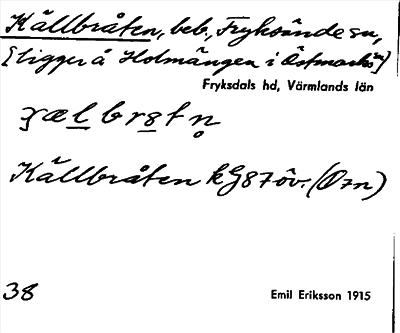 Källbråten, beb., Fryksände sn,
[ligger å Holmängen i Östmarks sn]
Fryksdals hd, Värmlands län
Källbråten kG87öv. (Ö7n)
38
Emil Eriksson 1915